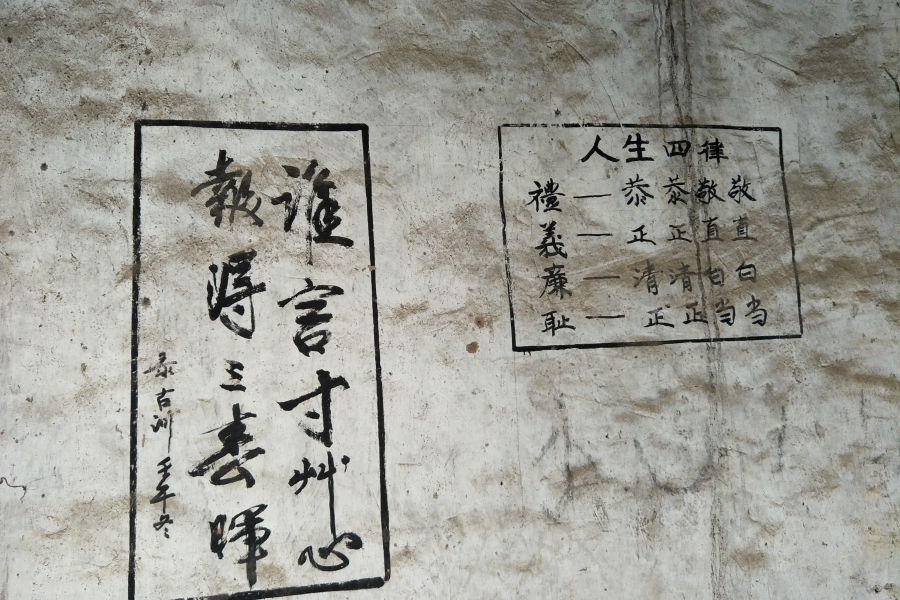 谁言寸艸心
報得三春暉
录古训 壬午冬
人生四律
禮一恭恭敬敬
義一正正直直
廉一清清白白
耻一正正当当